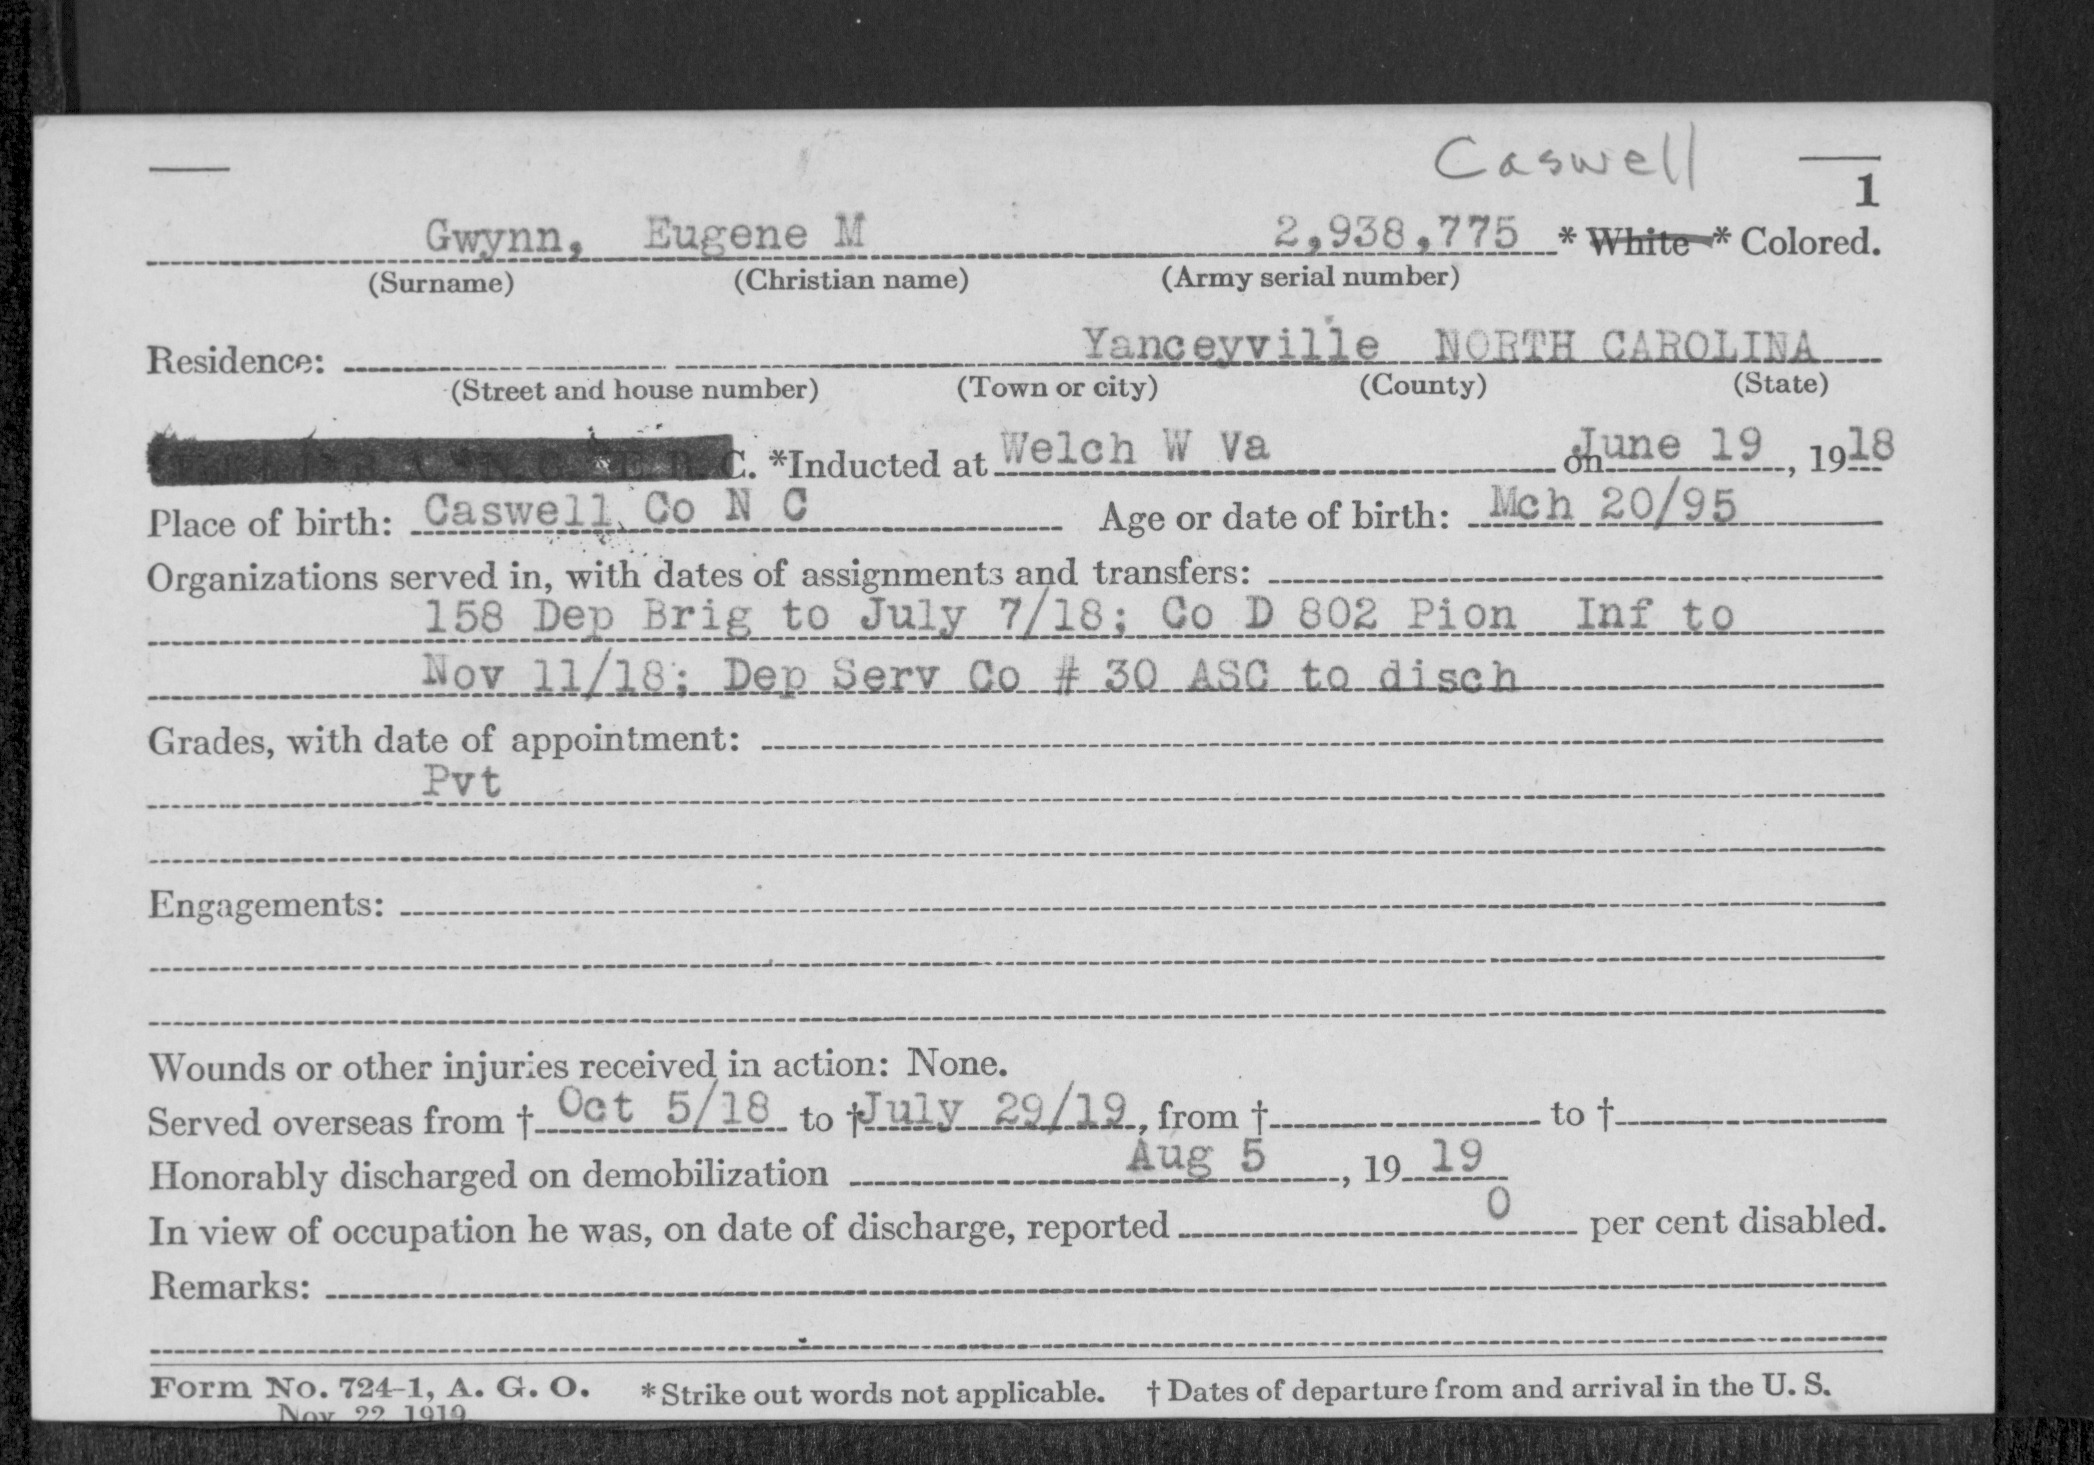 Caswell
1
Gwynn, Eugene M 2,938,775 * White * Colored.
(Surname) (Christian name) (Army serial number)
Residence: Yanceyville NORTH CAROLINA
(Street and house number) (Town or city) (County) (State)
C. *Inducted at Welch W Va on June 19, 1918
Place of birth: Caswell Co N C Age or date of birth: Mch 20/95
Organizations served in, with dates of assignments and transfers:
158 Dep Brig to July 7/18; Co D 802 Pion Inf to
Nov 11/18; Dep Serv Co # 30 ASC to disch
Grades, with date of appointment:
Pvt
Engagements:
Wounds or other injuries received in action: None.
Served overseas from † Oct 5/18 to † July 29/19, from † to †
Honorably discharged on demobilization Aug 5, 19 19
In view of occupation he was, on date of discharge, reported 0 per cent disabled.
Remarks:
Form No. 724-1, A. G. O. *Strike out words not applicable. † Dates of departure from and arrival in the U. S.
Nov. 22, 1919